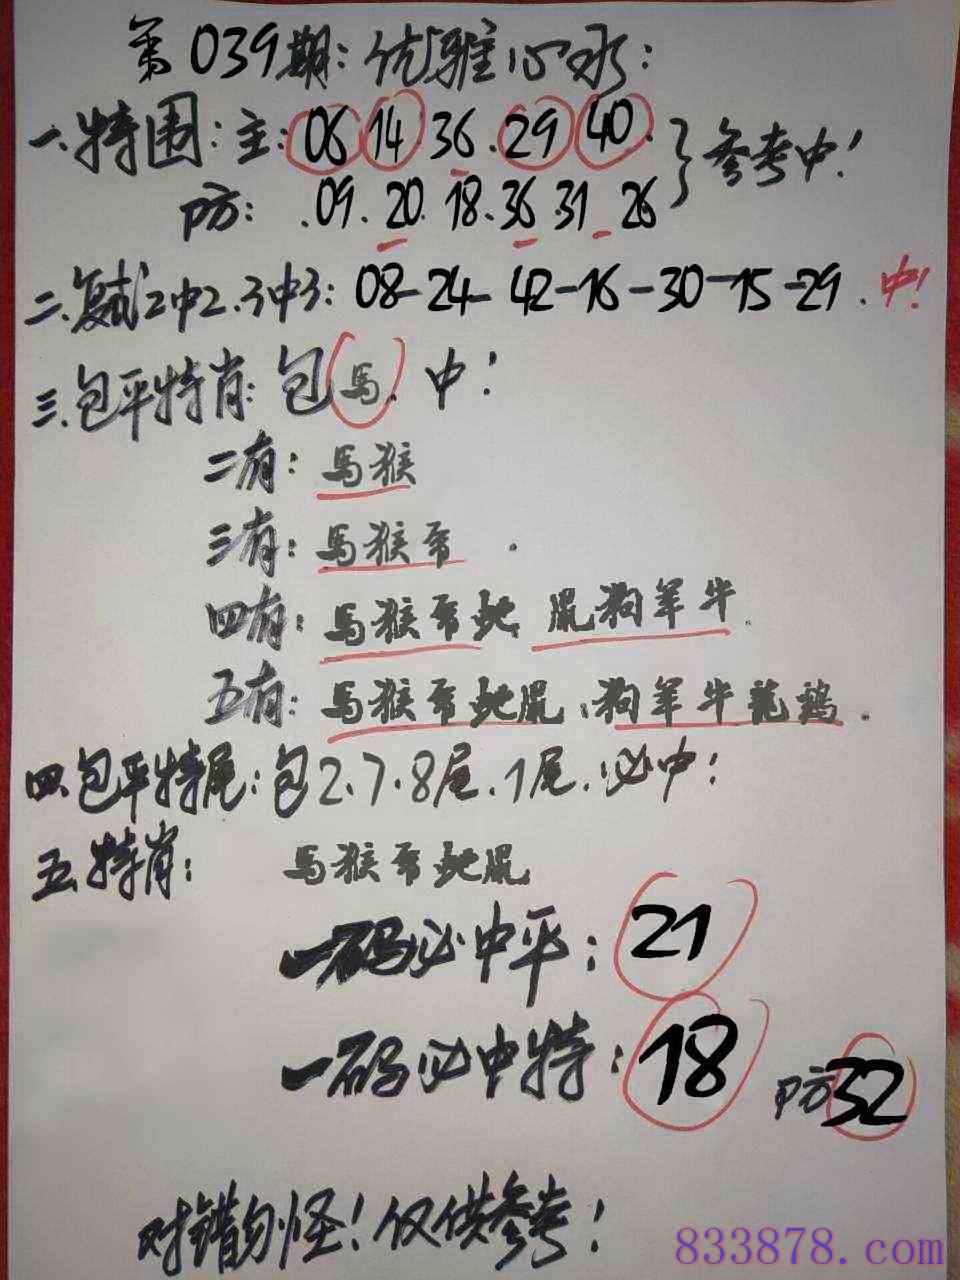 第039期:优雅心水:
一.特围:主:06 14.36.29 40.
防: .09.20.18.36.31 26
参考中!
二.复试2中2.3中3:08-24-42-16-30-15-29.中!
三.包平特肖:包馬.中!
二有:馬猴
三有:馬猴.
四有:馬猴 鼠狗羊牛.
五有:馬猴鼠.狗羊牛龍鷄.
四.包平特尾:包2.7.8尾.1尾.必中!
五.特肖: 馬猴鼠
一码必中平:21
一码必中特:18 防32
对错勿怪!仅供参考!
833878.com